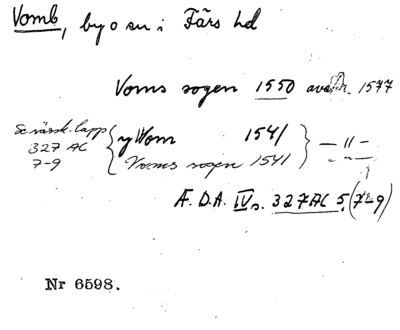 Vomb, by o sn i Färs hd
Voms sogen 1550 avskr. 1577
Se särsk. lapp
327 AC
7-9
y Wom 1541
Voms sogen 1541
— " —
- " -
Æ. D. A. IV s. 327 AC 5. (7-9)
Nr 6598.